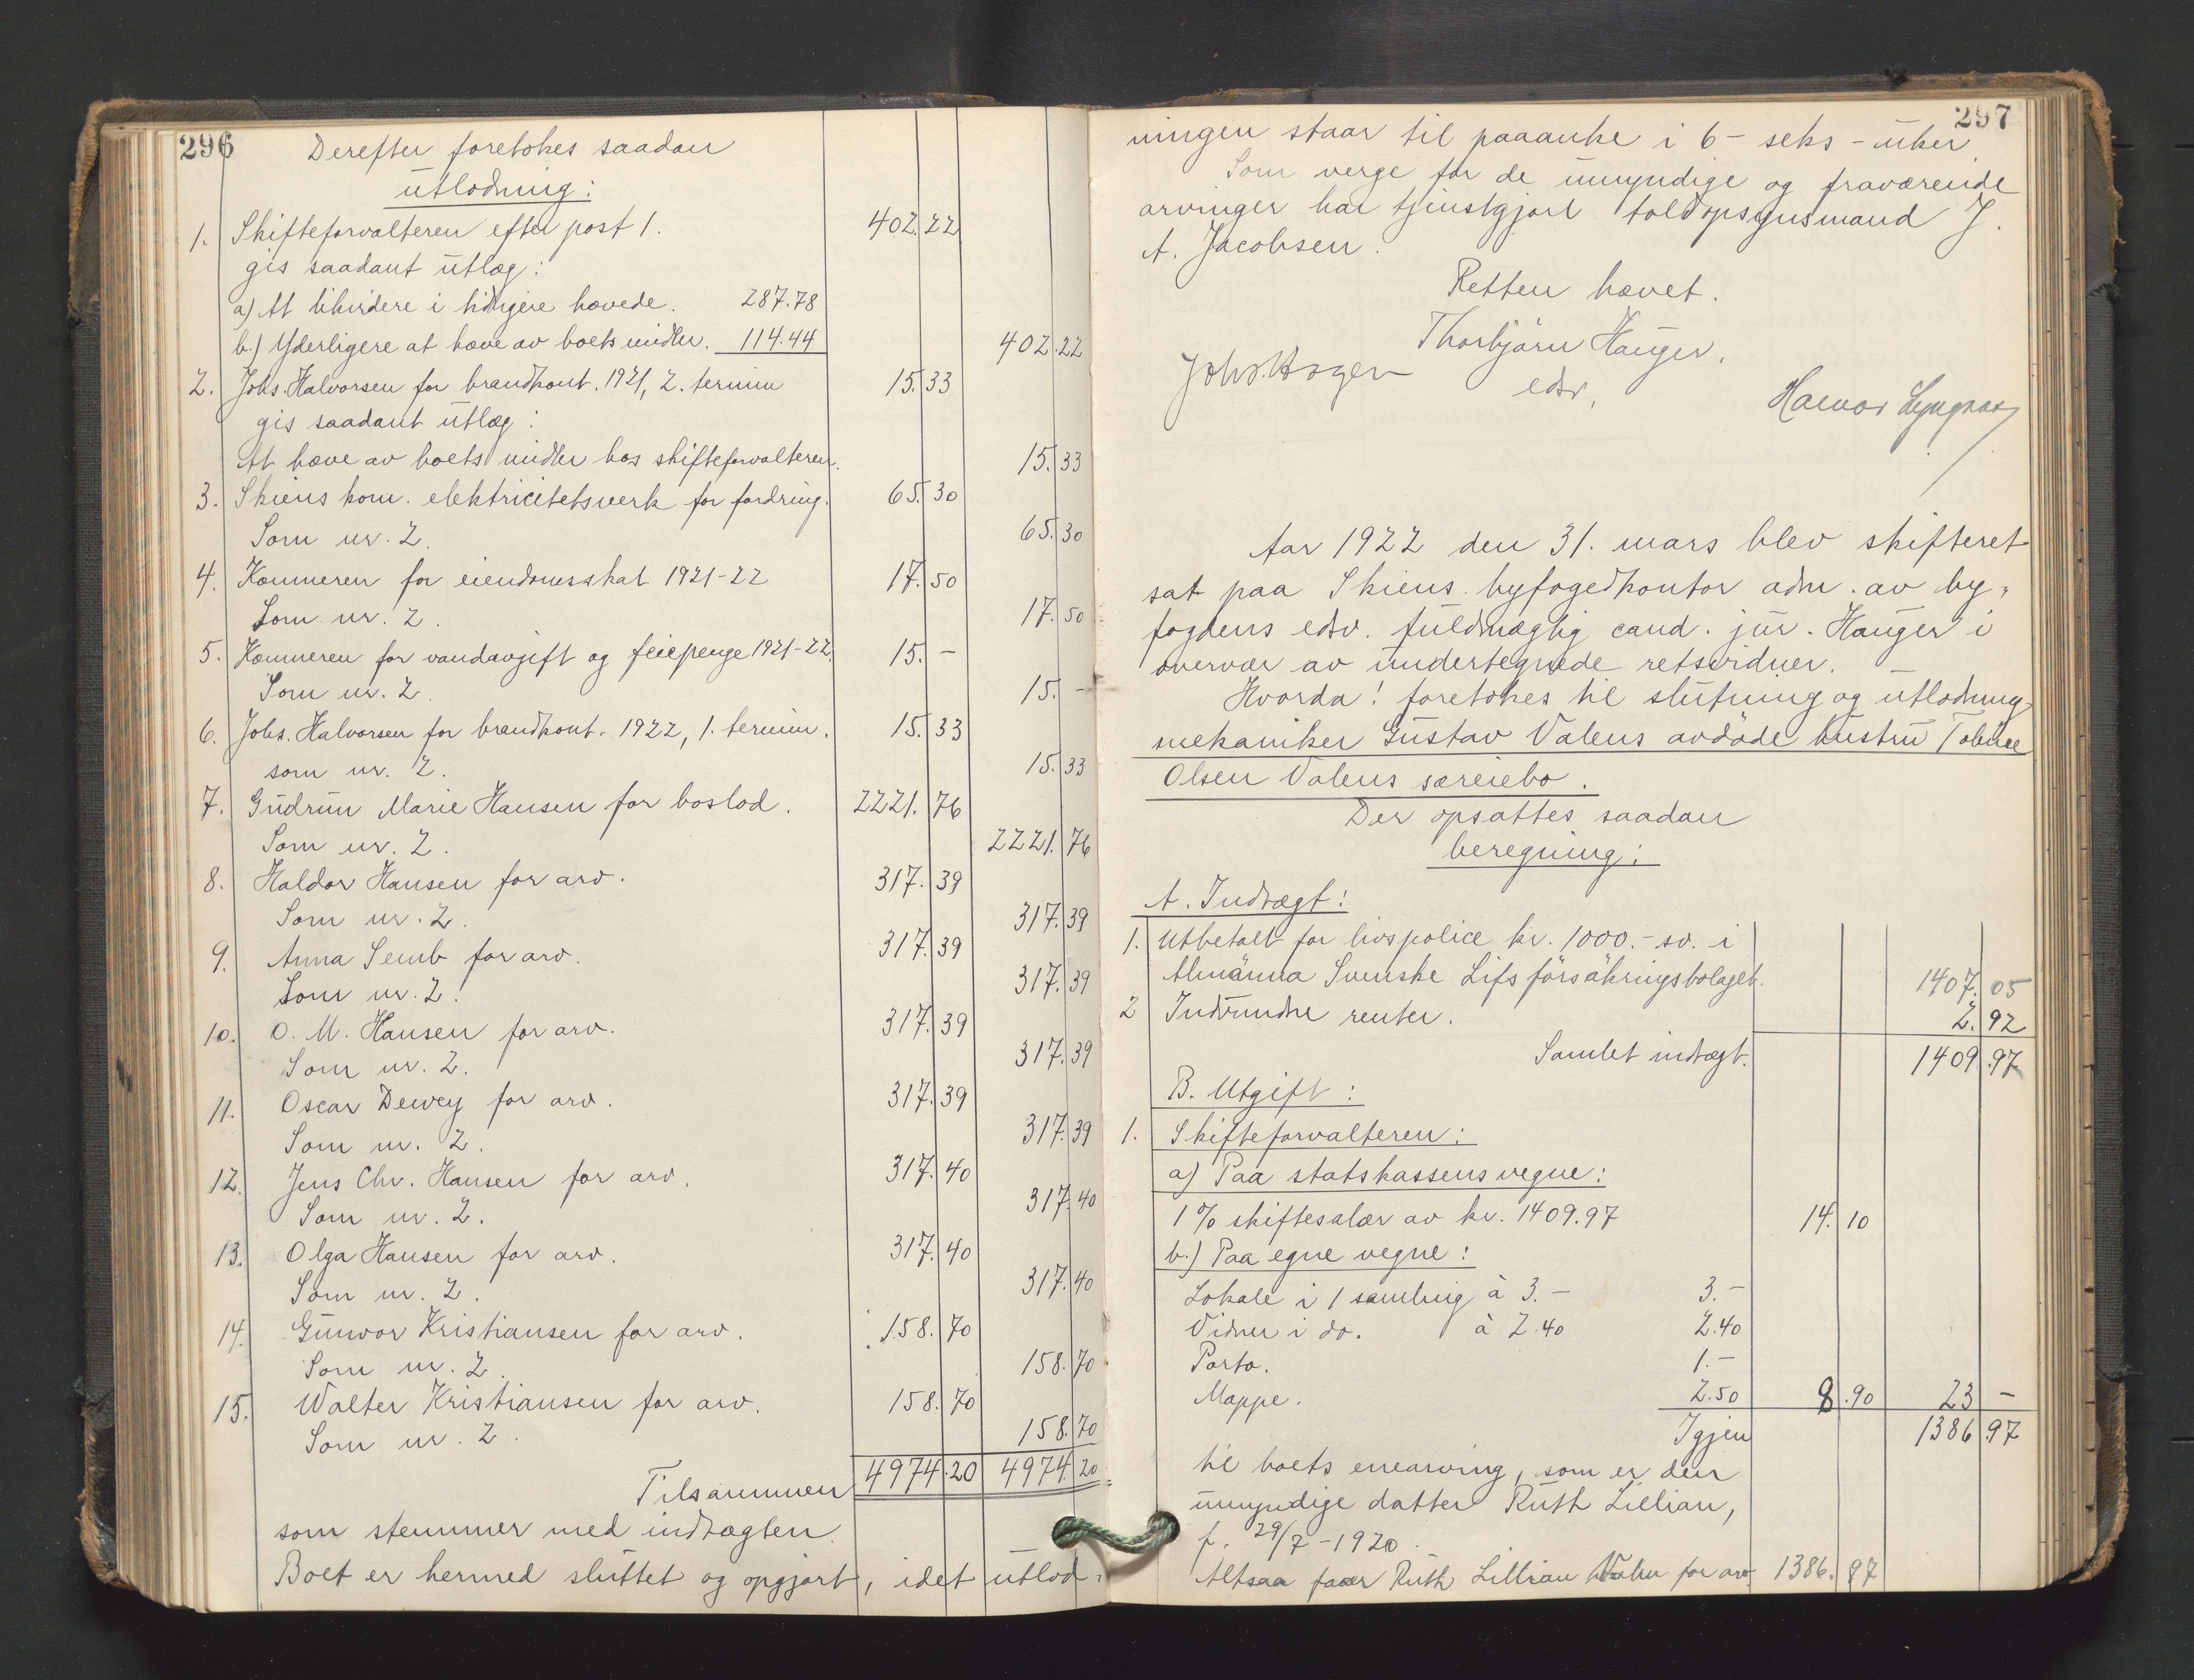 296
Derefter foretokes saadan
utlodning:
1. Skifteforvalteren efter post 1. 402.22
gis saadant utlæg:
a) At likvidere i tidligere hævede. 287.78
b.) Yderligere at hæve av boets midler. 114.44 402.22
2. Johs. Halvorsen for brandkont. 1921, 2. termin 15.33
gis saadant utlæg:
At hæve av boets midler hos skifteforvalteren. 15.33
3. Skiens kom. elektricitetsverk for fordring. 65.30
Som nr. 2. 65.30
4. Kæmneren for eiendomsskat 1921-22 17.50
Som nr. 2. 17.50
5. Kæmneren for vandavgift og feiepenge 1921-22. 15.-
Som nr. 2. 15.-
6. Johs. Halvorsen for brandkont. 1922, 1. termin. 15.33
som nr. 2. 15.33
7. Gudrun Marie Hansen for boslod. 2221.76
Som nr. 2. 2221.76
8. Haldor Hansen for arv. 317.39
Som nr. 2. 317.39
9. Anna Semb for arv. 317.39
Som nr. 2. 317.39
10. O. M. Hansen for arv. 317.39
Som nr. 2. 317.39
11. Oscar Dewey for arv. 317.39
Som nr. 2. 317.39
12. Jens Chr. Hansen for arv. 317.40
Som nr. 2. 317.40
13. Olga Hansen for arv. 317.40
Som nr. 2. 317.40
14. Gunvor Kristiansen for arv. 158.70
Som nr. 2. 158.70
15. Walter Kristiansen for arv. 158.70
Som nr. 2. 158.70
Tilsammen 4974.20 4974.20
som stemmer med indtægten.
Boet er hermed sluttet og opgjort, idet utlod-
297
ningen staar til paaanke i 6 - seks - uker.
Som verge for de umyndige og fraværende
arvinger har tjenstgjort toldopsynsmand J.
A. Jacobsen.
Retten hævet.
Thorbjørn Hauger,
edsv,
Johs. Hagen
Halvor
Aar 1922 den 31. mars blev skifteret
sat paa Skiens byfogedkontor adm. av by-
fogdens edsv. fuldmægtig cand. jur. Hauger i
overvær av undertegnede retsvidner.
Hvorda! foretokes til slutning og utlodning
mekaniker Gustav Valens avdøde hustru Tobine
Olsen Valens særeiebo.
Der opsattes saadan
beregning:
A. Indtægt:
1. Utbetalt for livspolice kr. 1000.- sv. i
Almänna Svenske Lifsförsäkringsbolaget. 1407.05
2 Indvundne renter. 2.92
Samlet indtægt. 1409.97
B. Utgift:
1. Skifteforvalteren:
a) Paa statskassens vegne:
1% skiftesalær av kr. 1409.97 14.10
b.) Paa egne vegne:
Lokale i 1 samling à 3.- 3.-
Vidner i do. à 2.40 2.40
Porto. 1.-
Mappe. 2.50 8.90 23 -
Igjen 1386.97
til boets enearving, som er den
umyndige datter Ruth Lillian,
f. 29/7-1920.
Altsaa faar Ruth Lillian Valen for arv. 1386.97